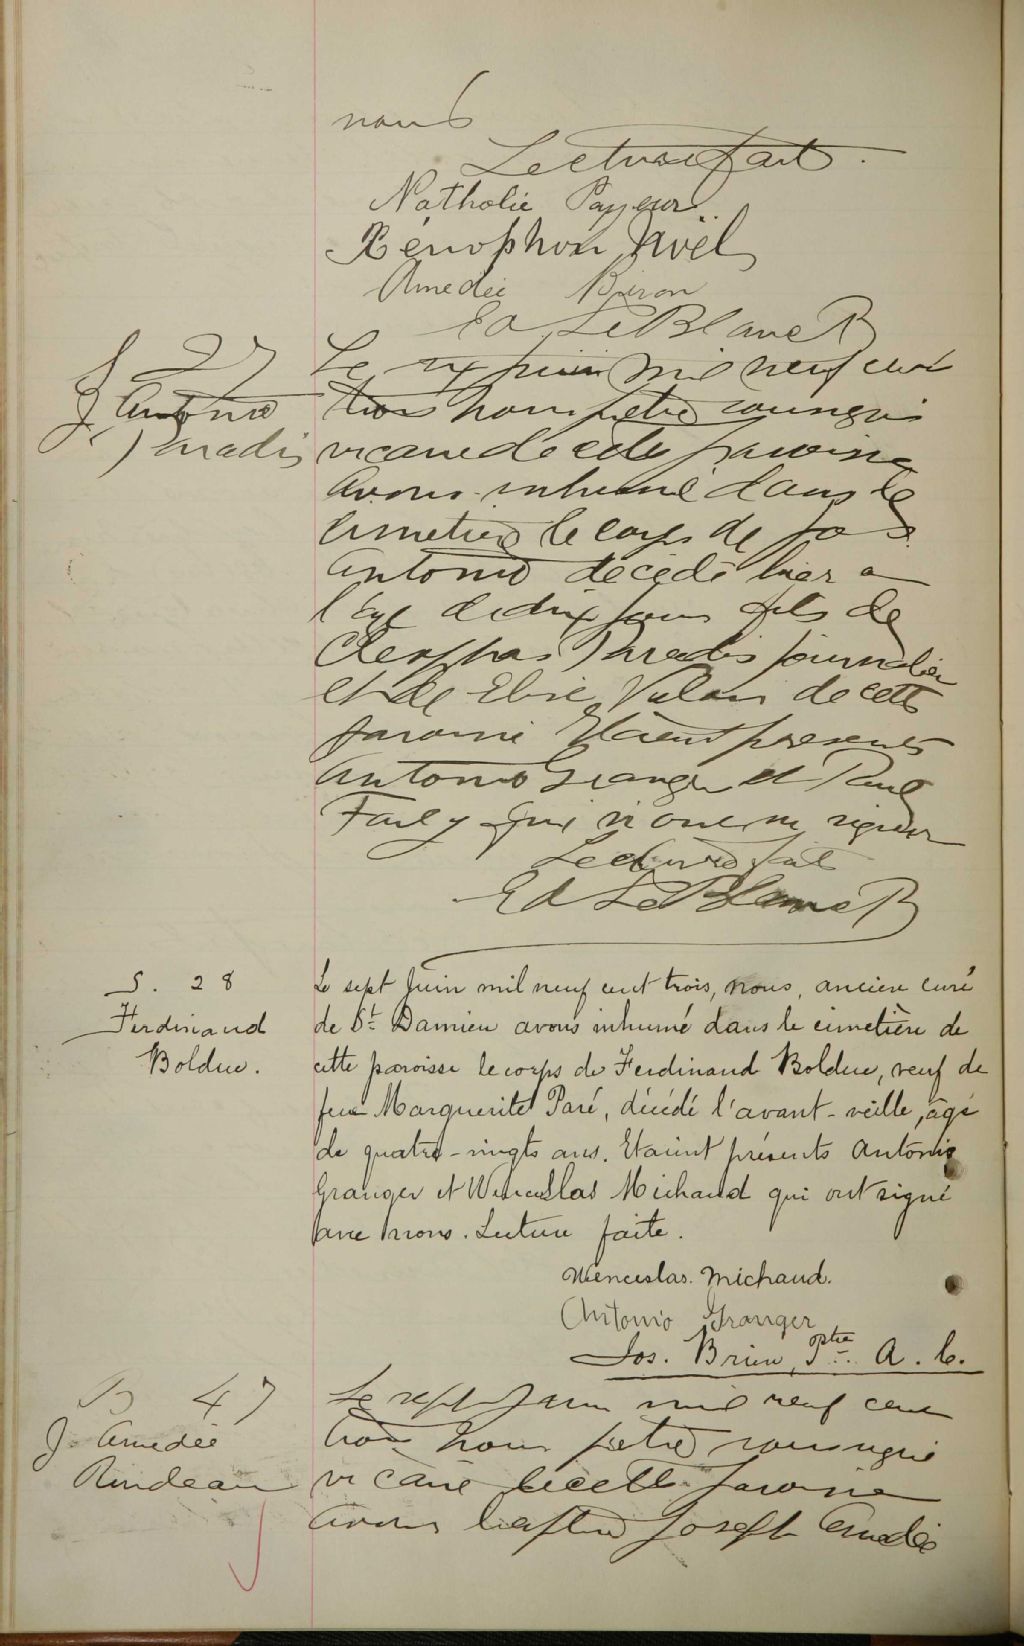 nous
Lecture faite.
Nathalie Payeur
Xénophon Noël
Amedée Biron
Ed LeBlanc
S 27
J. Antonio
Paradis
Le six juin mil neuf cent
trois nous prêtre soussigné
vicaire de cette paroisse
avons inhumé dans le
cimetière le corps de Jos
Antonio décédé hier a
l'age de dix jours fils de
Cléophas Paradis journalier
et de Elise de cette
paroisse Etaient présents
Antonio Granger et Paul
qui n'ont su signer
Lecture faite
Ed LeBlanc
S. 28
Ferdinand
Bolduc.
Le sept Juin mil neuf cent trois, nous, ancien curé
de St Damien avons inhumé dans le cimetière de
cette paroisse le corps de Ferdinand Bolduc, veuf de
feue Marguerite Paré, décédé l'avant-veille, âgé
de quatre-vingts ans. Etaient présents Antonio
Granger et Wenceslas Michaud qui ont signé
avec nous. Lecture faite.
Wenceslas. Michaud.
Antonio Granger
Jos. Brien, Ptre A. C.
B 47
J. Amedée
Rondeau
Le sept Juin mil neuf cent
trois nous prêtre soussigné
vicaire de cette paroisse
avons baptisé Joseph Amedée